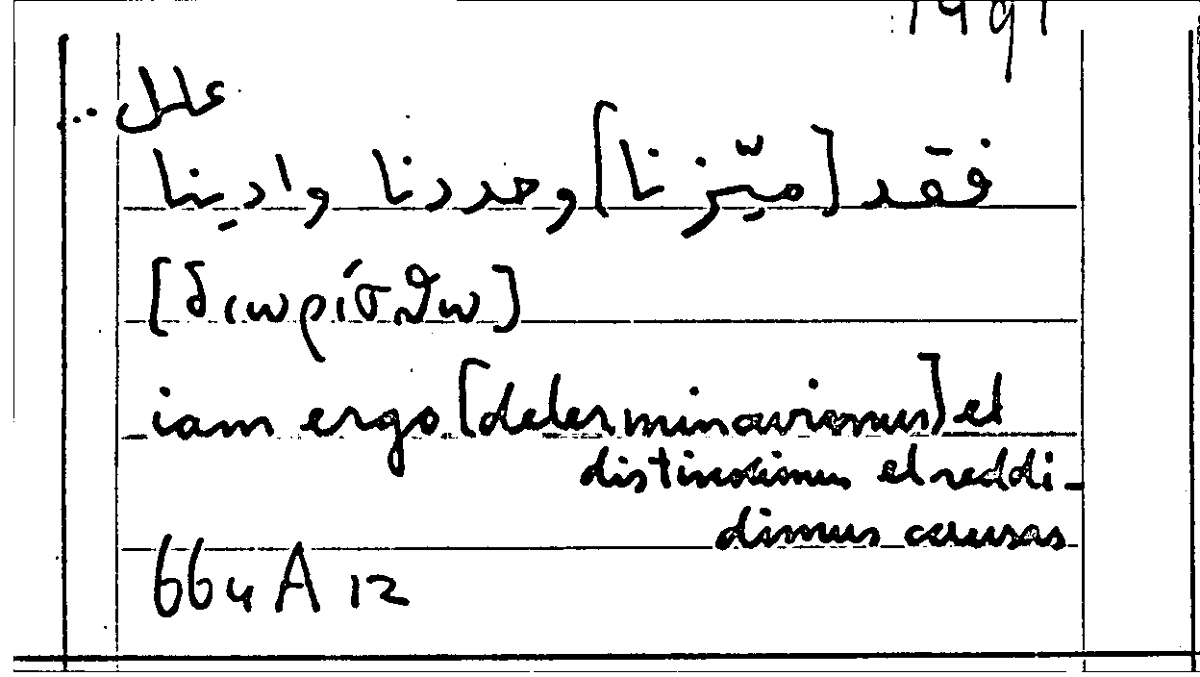 علل ..
فقد [ميّزنا] وحددنا وادينا
[διωρίσθω]
iam ergo [determinavimus] et
distinximus et reddi-
dimus causas
664 A 12